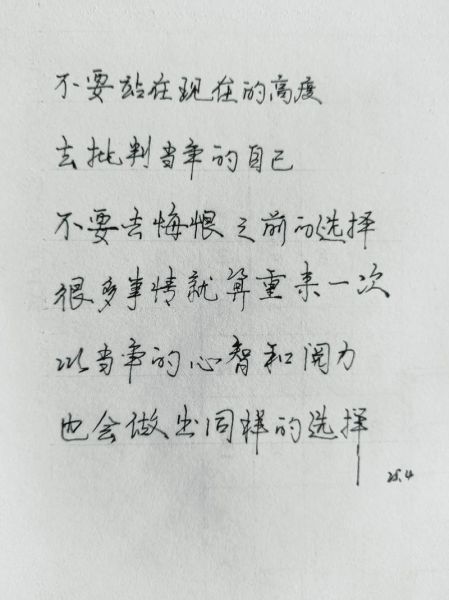 不要站在现在的高度
去批判当年的自己
不要去悔恨之前的选择
很多事情就算重来一次
以当年的心智和阅力
也会做出同样的选择
25.4